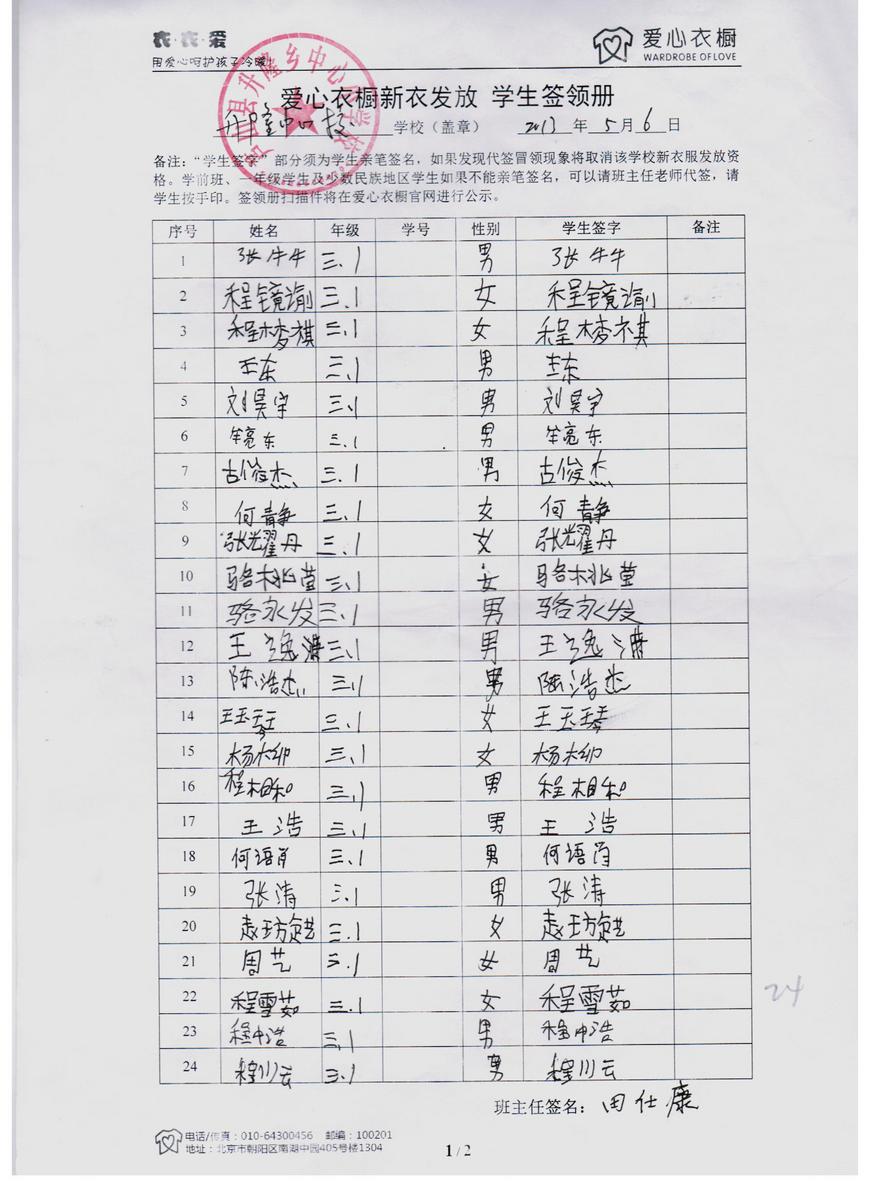 衣·衣·爱
用爱心呵护孩子冷暖!
爱心衣橱
WARDROBE OF LOVE
县升隆乡中心学校
爱心衣橱新衣发放 学生签领册
升隆中心校 学校（盖章） 2013 年 5 月 6 日
备注：“学生签字”部分须为学生亲笔签名，如果发现代签冒领现象将取消该学校新衣服发放资
格。学前班、一年级学生及少数民族地区学生如果不能亲笔签名，可以请班主任老师代签，请
学生按手印。签领册扫描件将在爱心衣橱官网进行公示。
序号 姓名 年级 学号 性别 学生签字 备注
1 张牛牛 三.1 男 张牛牛
2 程镜渝 三.1 女 程镜渝
3 程梦祺 三.1 女 程梦祺
4 东 三.1 男 东
5 刘昊宇 三.1 男 刘昊宇
6 亮东 三.1 男 亮东
7 古俊杰 三.1 男 古俊杰
8 何静 三.1 女 何静
9 张耀丹 三.1 女 张耀丹
10 骆桃莹 三.1 女 骆桃莹
11 骆永发 三.1 男 骆永发
12 王逸涛 三.1 男 王逸涛
13 陈浩杰 三.1 男 陈浩杰
14 王玉琴 三.1 女 王玉琴
15 杨柳 三.1 女 杨柳
16 程相和 三.1 男 程相和
17 王浩 三.1 男 王浩
18 何语肖 三.1 男 何语肖
19 张涛 三.1 男 张涛
20 赵 三.1 女 赵
21 周艺 三.1 女 周艺
22 程雪茹 三.1 女 程雪茹
23 程中浩 三.1 男 程中浩
24 程川云 三.1 男 程川云
24
班主任签名：田仕康
电话/传真：010-64300456 邮编：100201
地址：北京市朝阳区南湖中园405号楼1304
1 / 2